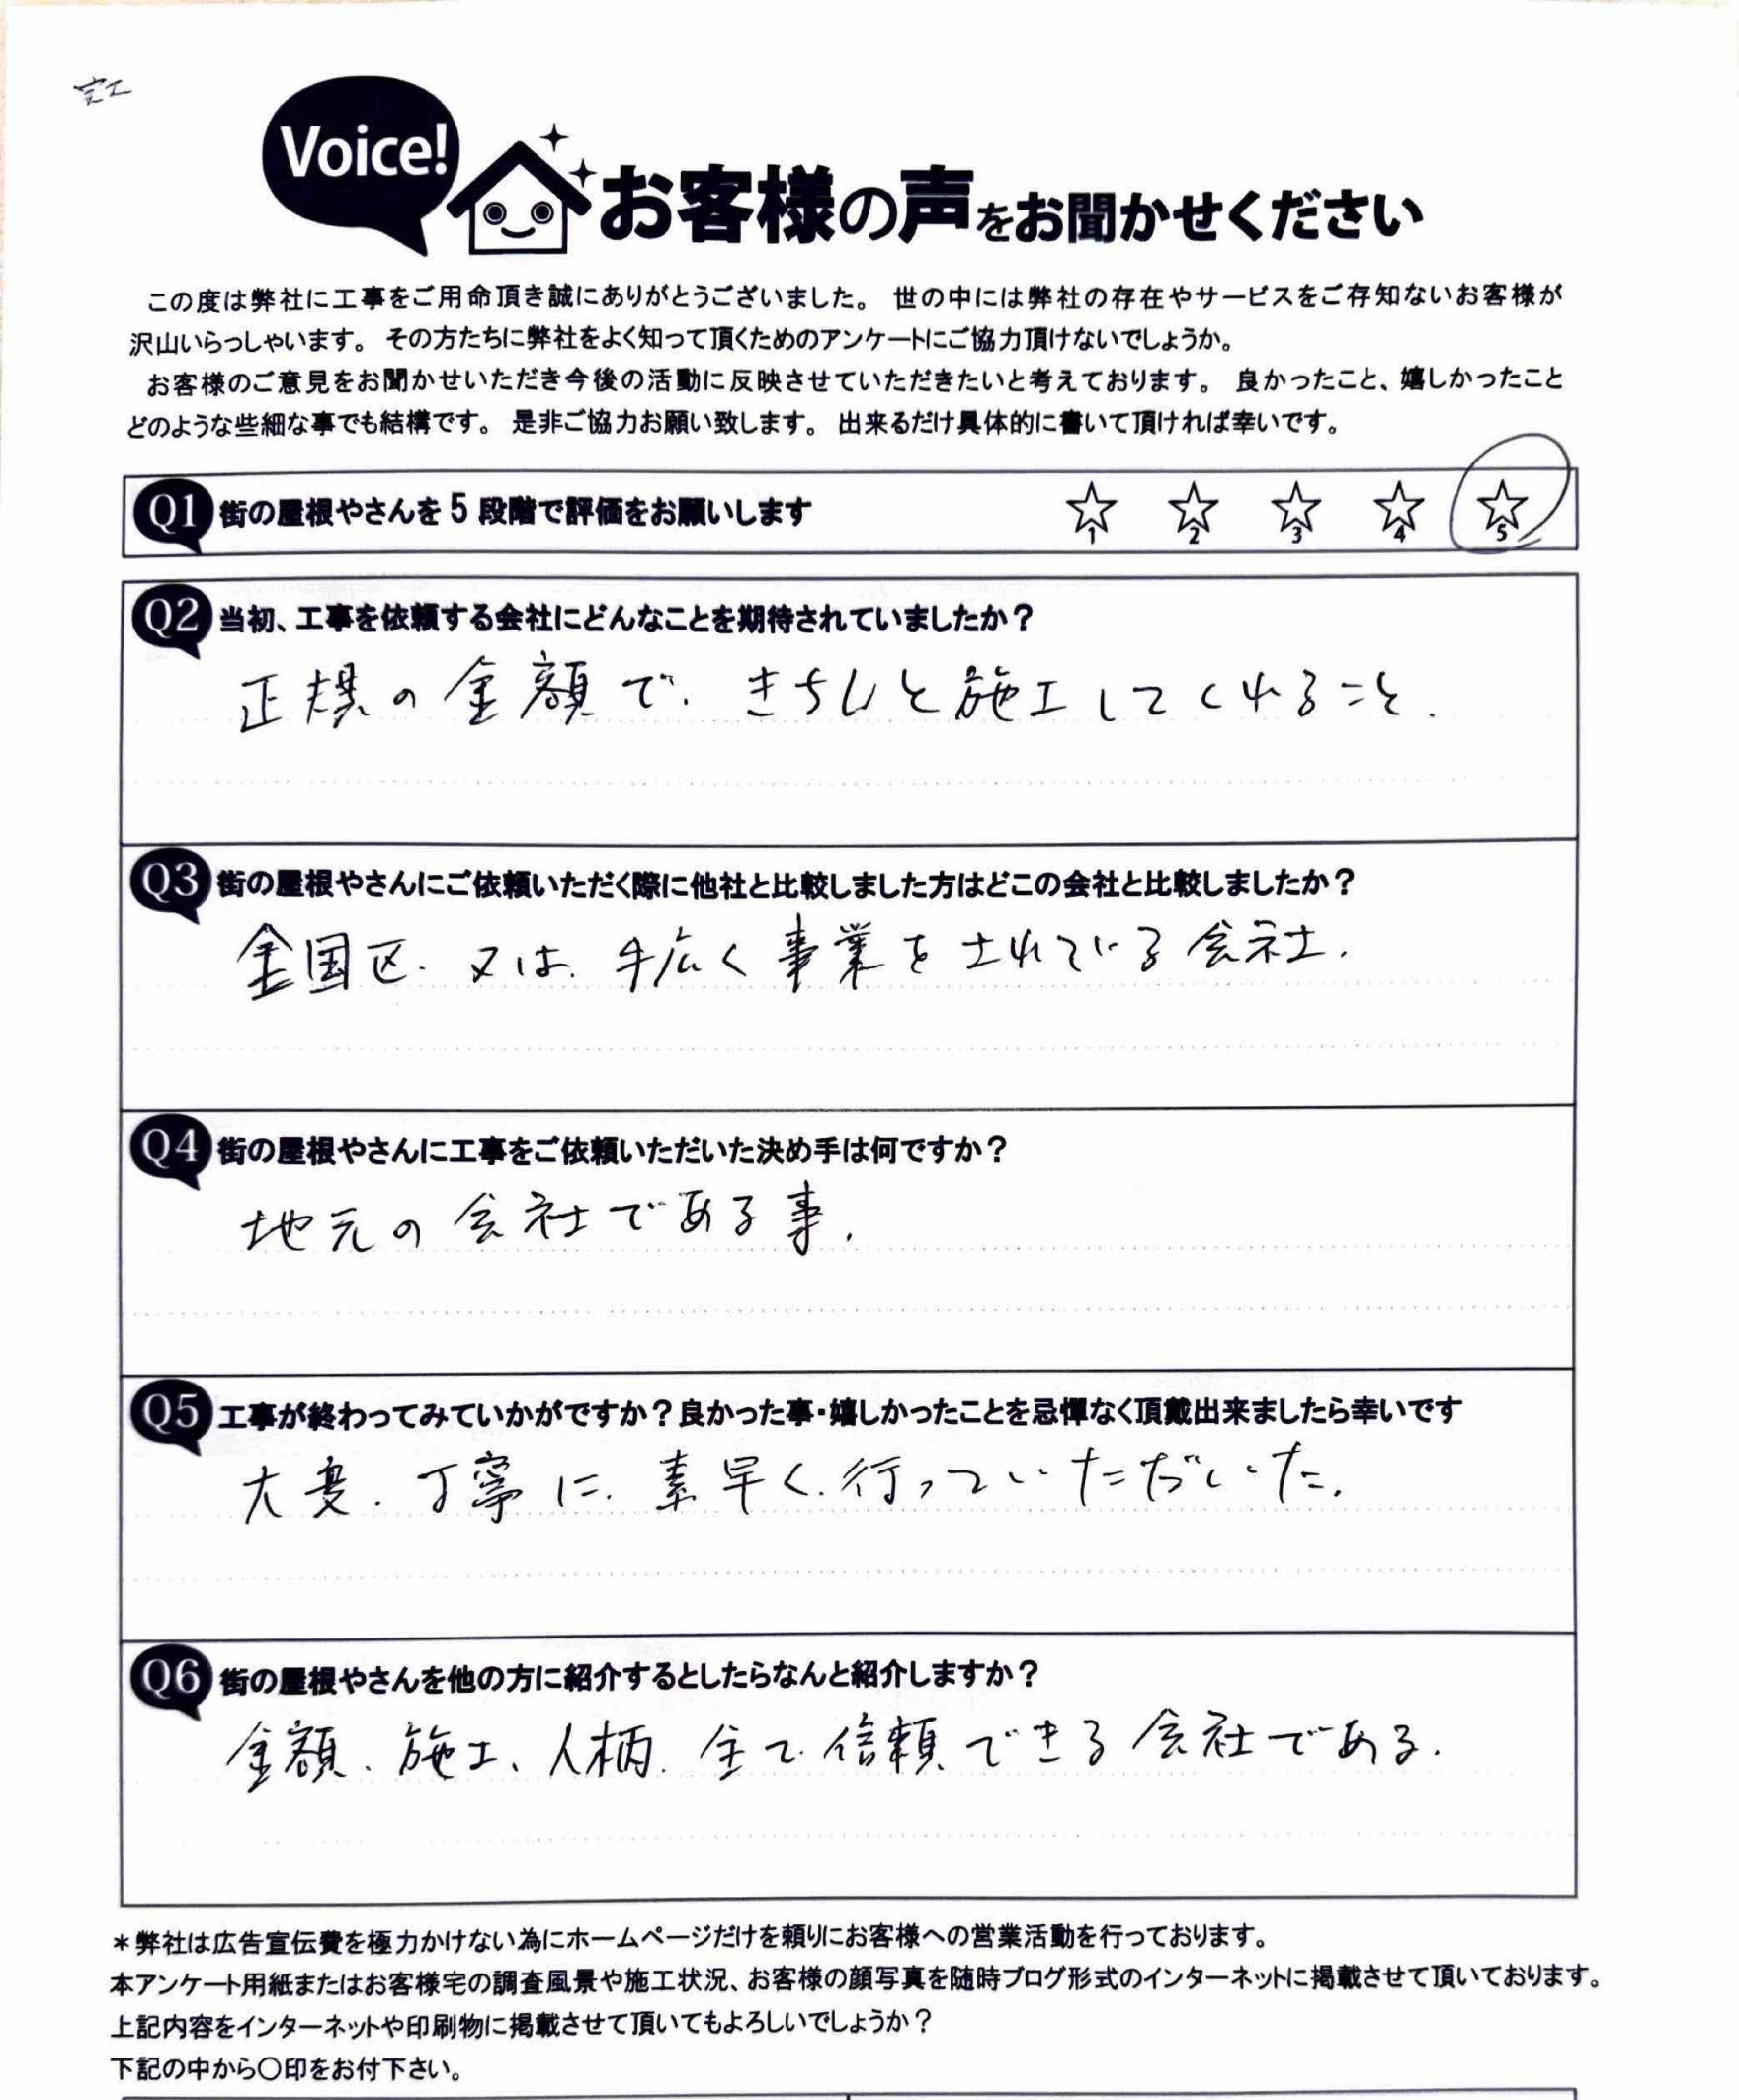 完工
Voice!
お客様の声をお聞かせください
この度は弊社に工事をご用命頂き誠にありがとうございました。 世の中には弊社の存在やサービスをご存知ないお客様が
沢山いらっしゃいます。 その方たちに弊社をよく知って頂くためのアンケートにご協力頂けないでしょうか。
お客様のご意見をお聞かせいただき今後の活動に反映させていただきたいと考えております。 良かったこと、嬉しかったこと
どのような些細な事でも結構です。 是非ご協力お願い致します。 出来るだけ具体的に書いて頂ければ幸いです。
Q1 街の屋根やさんを5段階で評価をお願いします ☆1 ☆2 ☆3 ☆4 ☆5
Q2 当初、工事を依頼する会社にどんなことを期待されていましたか？
正規の金額で、きちんと施工してくれること.
Q3 街の屋根やさんにご依頼いただく際に他社と比較しました方はどこの会社と比較しましたか？
全国区、又は、手広く事業をされている会社.
Q4 街の屋根やさんに工事をご依頼いただいた決め手は何ですか？
地元の会社である事.
Q5 工事が終わってみていかがですか？良かった事・嬉しかったことを忌憚なく頂戴出来ましたら幸いです
大変、丁寧に、素早く、行っていただいた.
Q6 街の屋根やさんを他の方に紹介するとしたらなんと紹介しますか？
金額、施工、人柄、全て信頼できる会社である.
＊弊社は広告宣伝費を極力かけない為にホームページだけを頼りにお客様への営業活動を行っております。
本アンケート用紙またはお客様宅の調査風景や施工状況、お客様の顔写真を随時ブログ形式のインターネットに掲載させて頂いております。
上記内容をインターネットや印刷物に掲載させて頂いてもよろしいでしょうか？
下記の中から〇印をお付下さい。